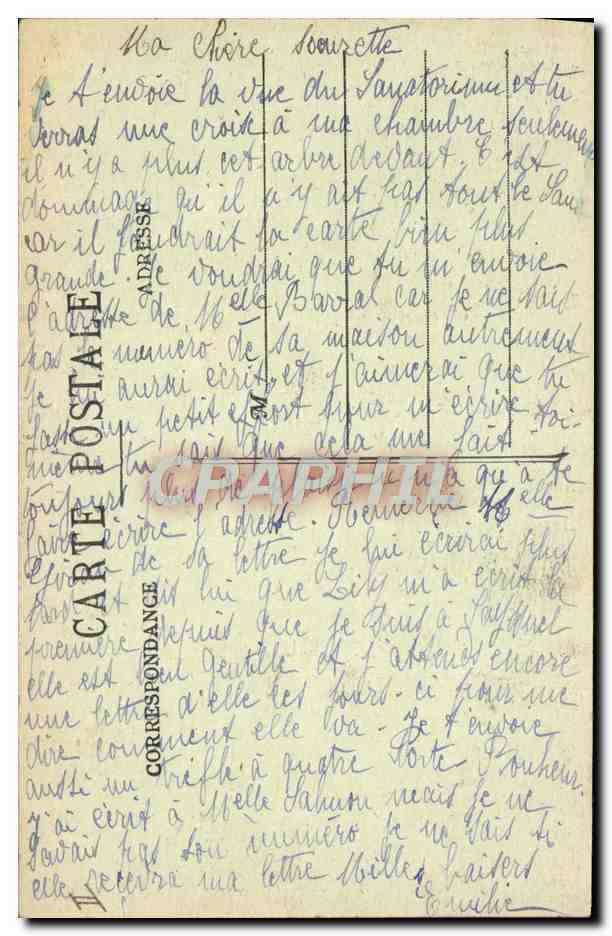 Ma Chère soeurette
Je t'envoie la vue du Sanatorium et tu
verras une croix à ma chambre seulement
il n'y a plus cet arbre devant. C'est
dommage qu'il n'y ait pas tout le Sana
car il faudrait la carte bien plus
grande. Je voudrai que tu m'envoie
l'adresse de Melle Barral car je ne sais
pas le numéro de sa maison autrement
je aurai écrit, et j'aimerai que tu
fasse un petit effort pour m'écrire toi-
même tu sais que cela me fait
toujours plus de plaisir
faire écrire l'adresse. Remercie Melle
de sa lettre je lui écrirai plus
tard et dis lui que m'a écrit la
première depuis que je suis à
elle est bien gentille et j'attends encore
une lettre d'elle ces jours-ci pour me
dire comment elle va. Je t'envoie
aussi un trèfle à quatre Porte Bonheur.
J'ai écrit à Melle mais je ne
savais pas son numéro je ne sais si
elle recevra ma lettre Mille baisers
Emilie
CARTE POSTALE
CORRESPONDANCE
ADRESSE
M
CPAPHIL